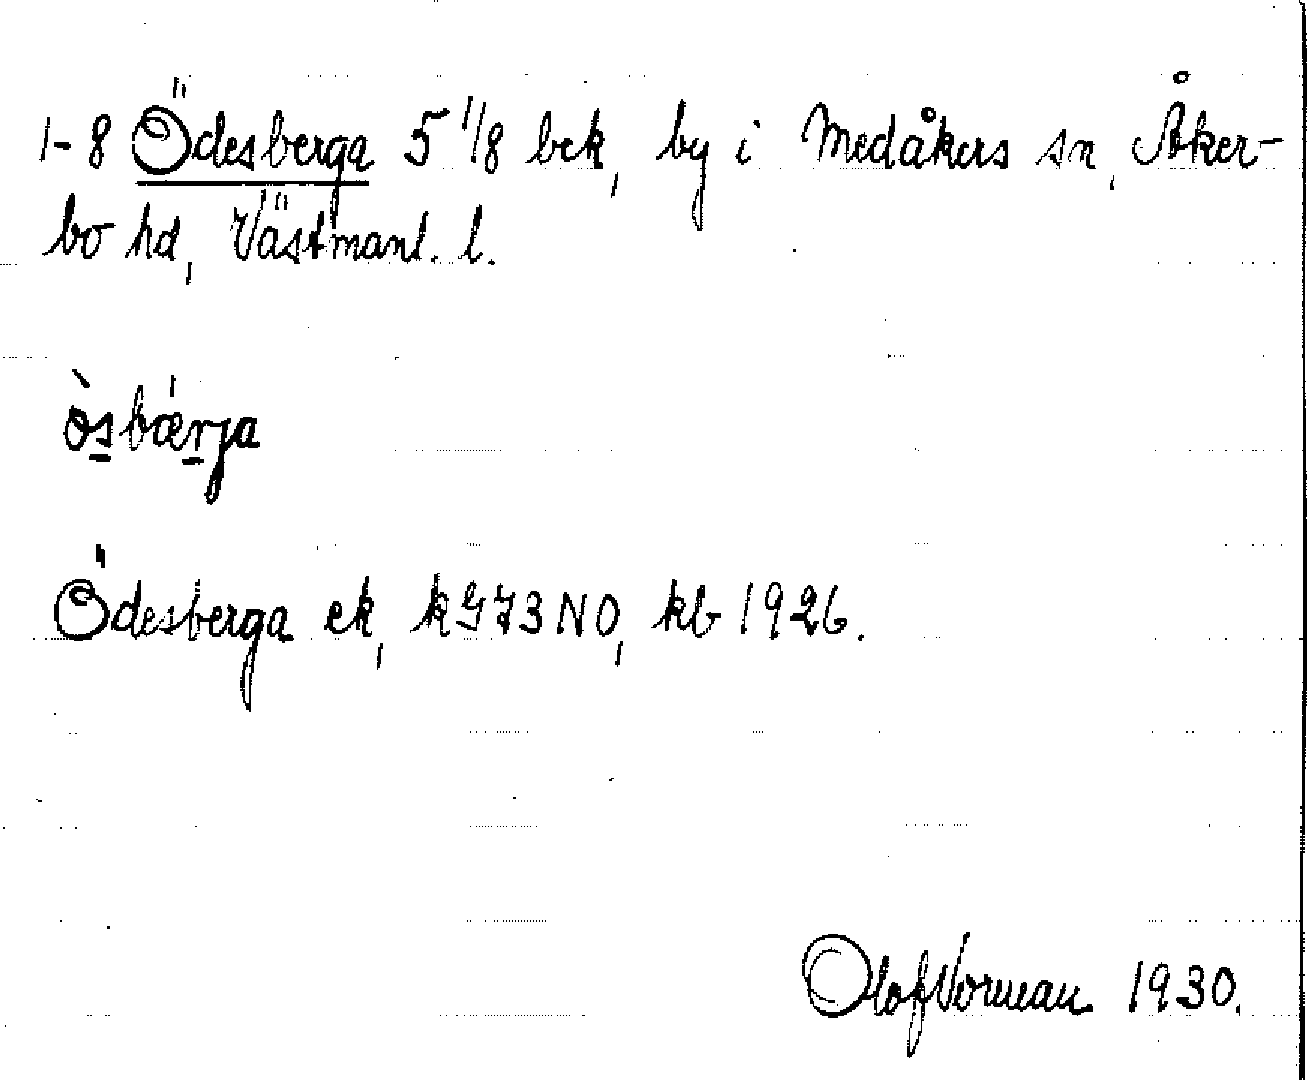 1-8 Ödesberga 5 1/8 bek, by i Medåkers sn, Åker-
bo hd, Västmanl. l.
ò̱sbǽrja
Ödesberga ek, k G73 NO, kb 1926.
Olof Vorman 1930.